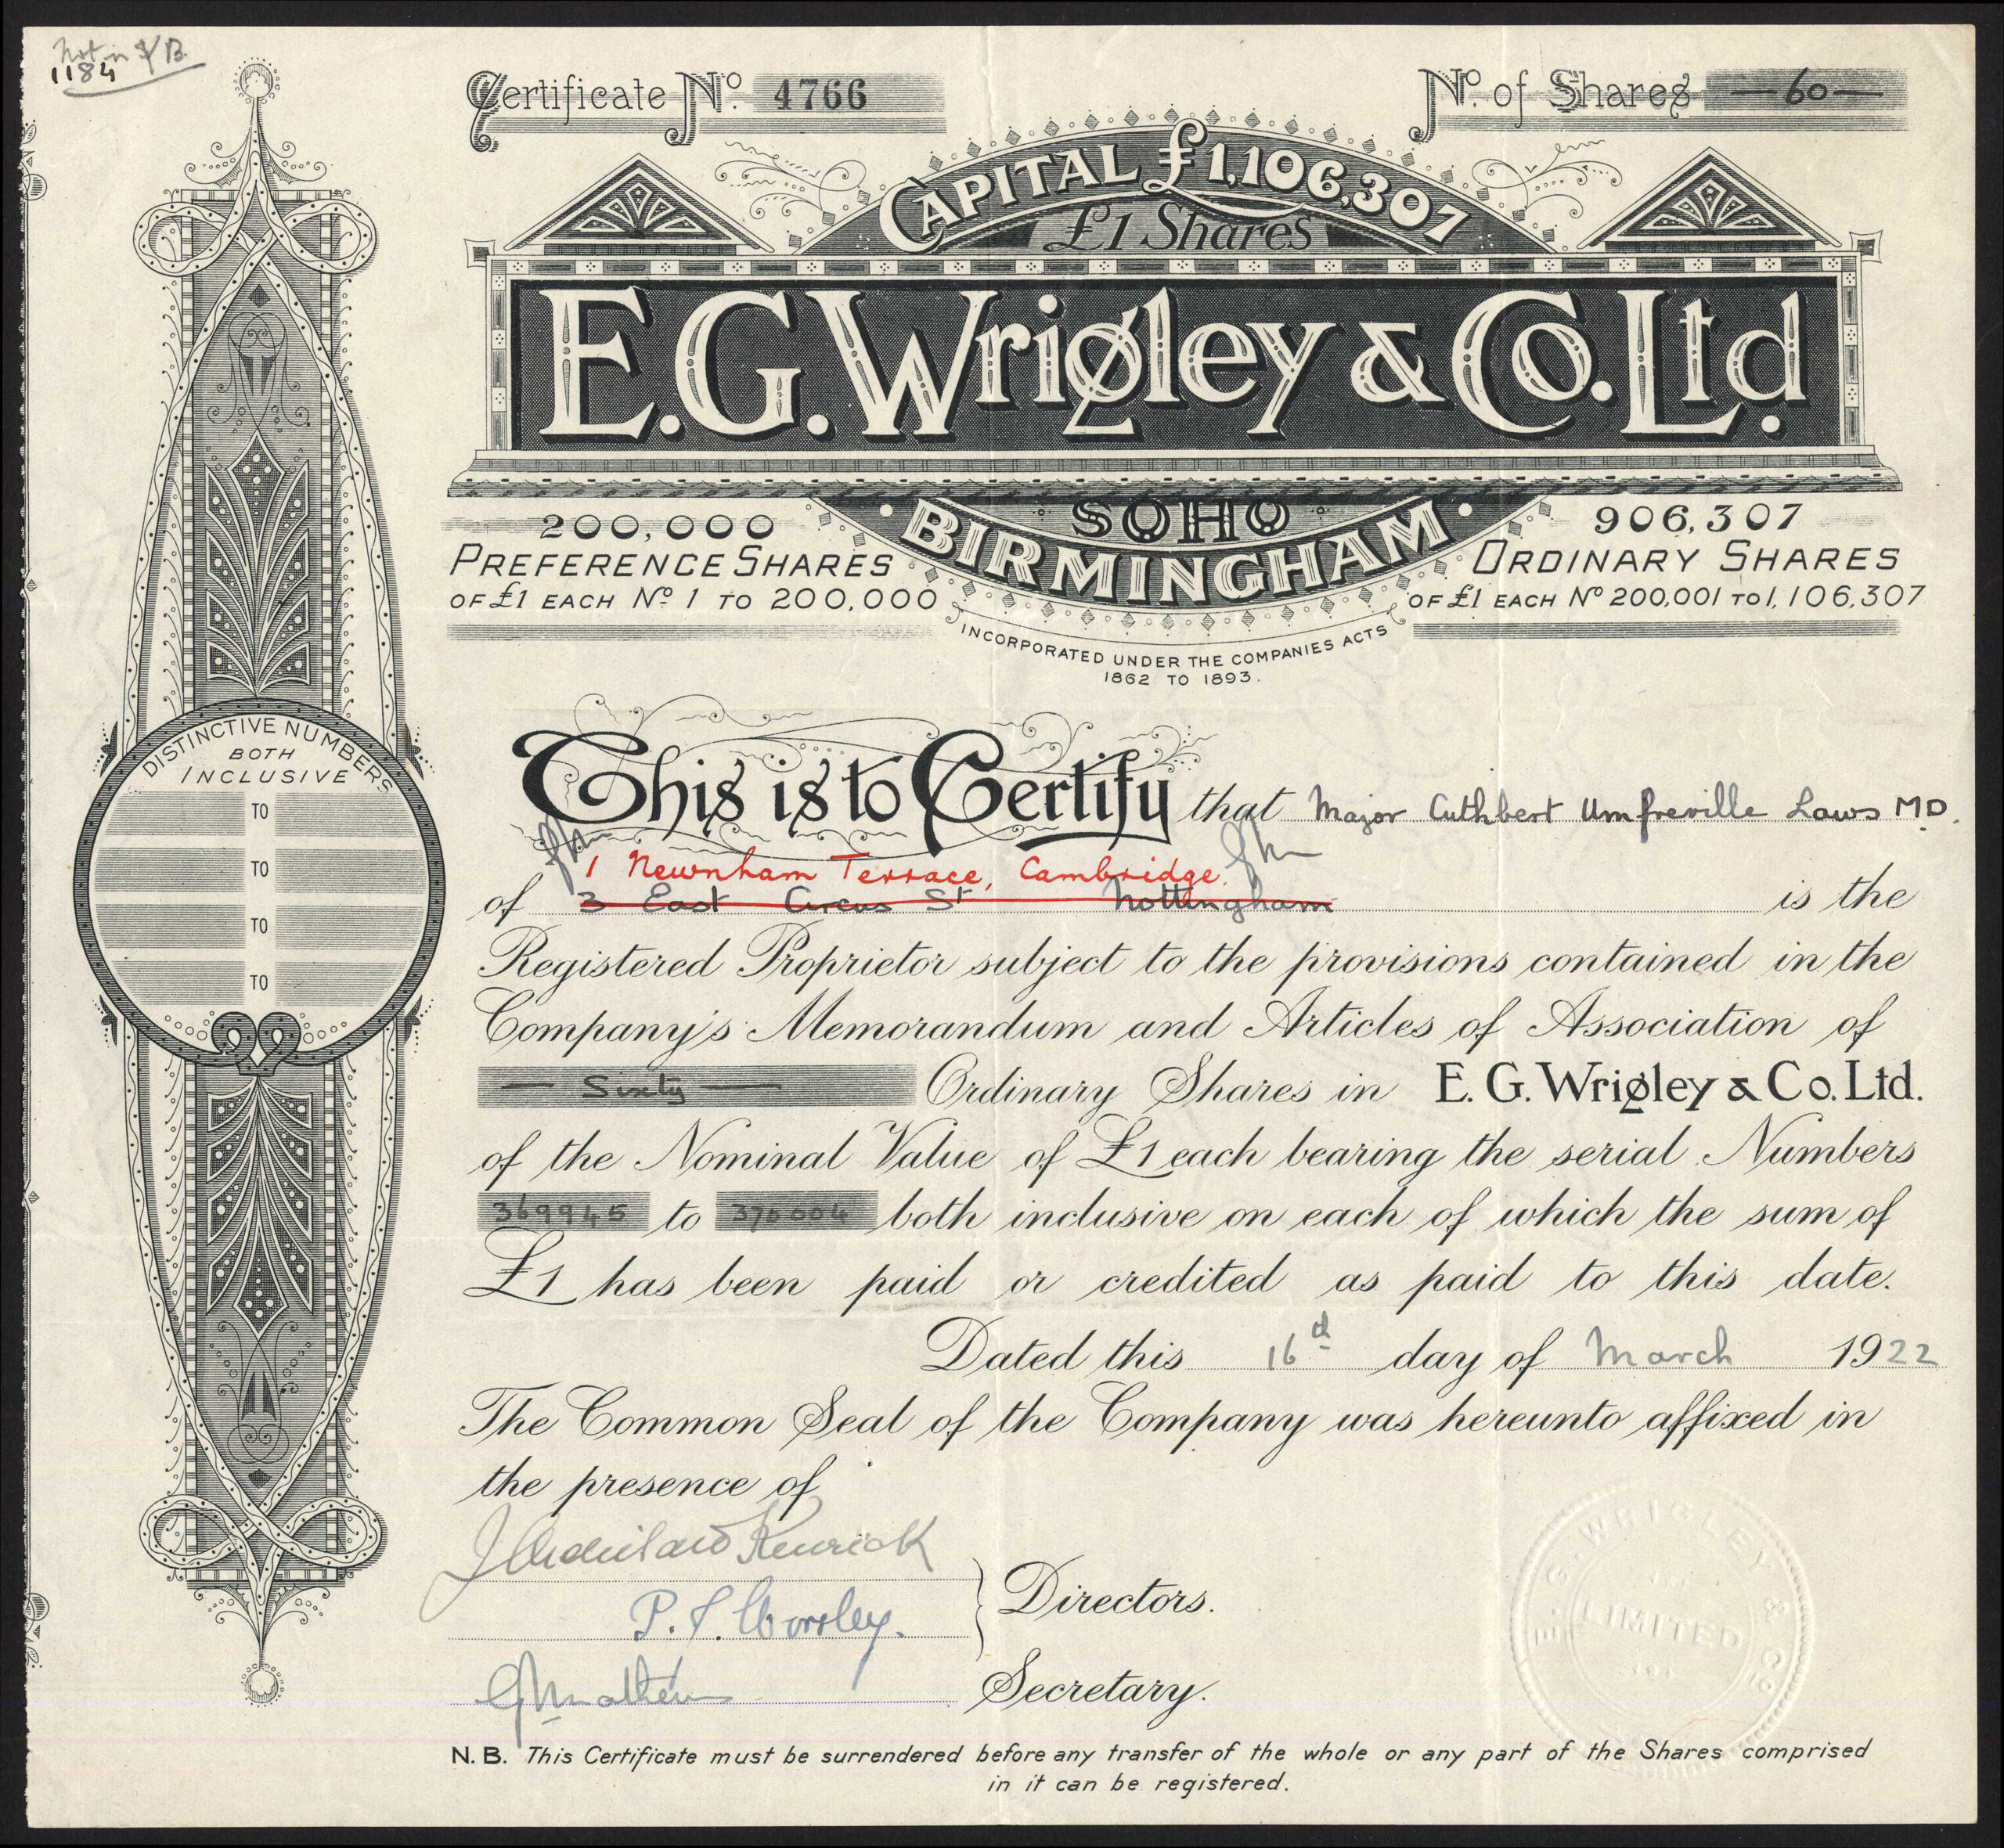 Not in
1184
Certificate No. 4766
No. of Shares — 60 —
CAPITAL £1,106,307
£1 Shares
E.G. Wrigley & Co. Ltd.
SOHO
BIRMINGHAM
200,000
PREFERENCE SHARES
OF £1 EACH No. 1 TO 200,000
906,307
ORDINARY SHARES
OF £1 EACH No 200,001 TO 1,106,307
INCORPORATED UNDER THE COMPANIES ACTS
1862 TO 1893.
DISTINCTIVE NUMBERS
BOTH
INCLUSIVE
TO
TO
TO
TO
This is to Certify that Major Cuthbert Umfreville Laws M.D.
1 Newnham Terrace, Cambridge.
of 3 East Circus St Nottingham is the
Registered Proprietor subject to the provisions contained in the
Company's Memorandum and Articles of Association of
— Sixty — Ordinary Shares in E. G. Wrigley & Co. Ltd.
of the Nominal Value of £1 each bearing the serial Numbers
369945 to 370004 both inclusive on each of which the sum of
£1 has been paid or credited as paid to this date.
Dated this 16d day of March 1922
The Common Seal of the Company was hereunto affixed in
the presence of
Kenrick
P. Worsley.
Directors.
G Mathews
Secretary.
E. G. WRIGLEY & Co.
LIMITED
N.B. This Certificate must be surrendered before any transfer of the whole or any part of the Shares comprised
in it can be registered.